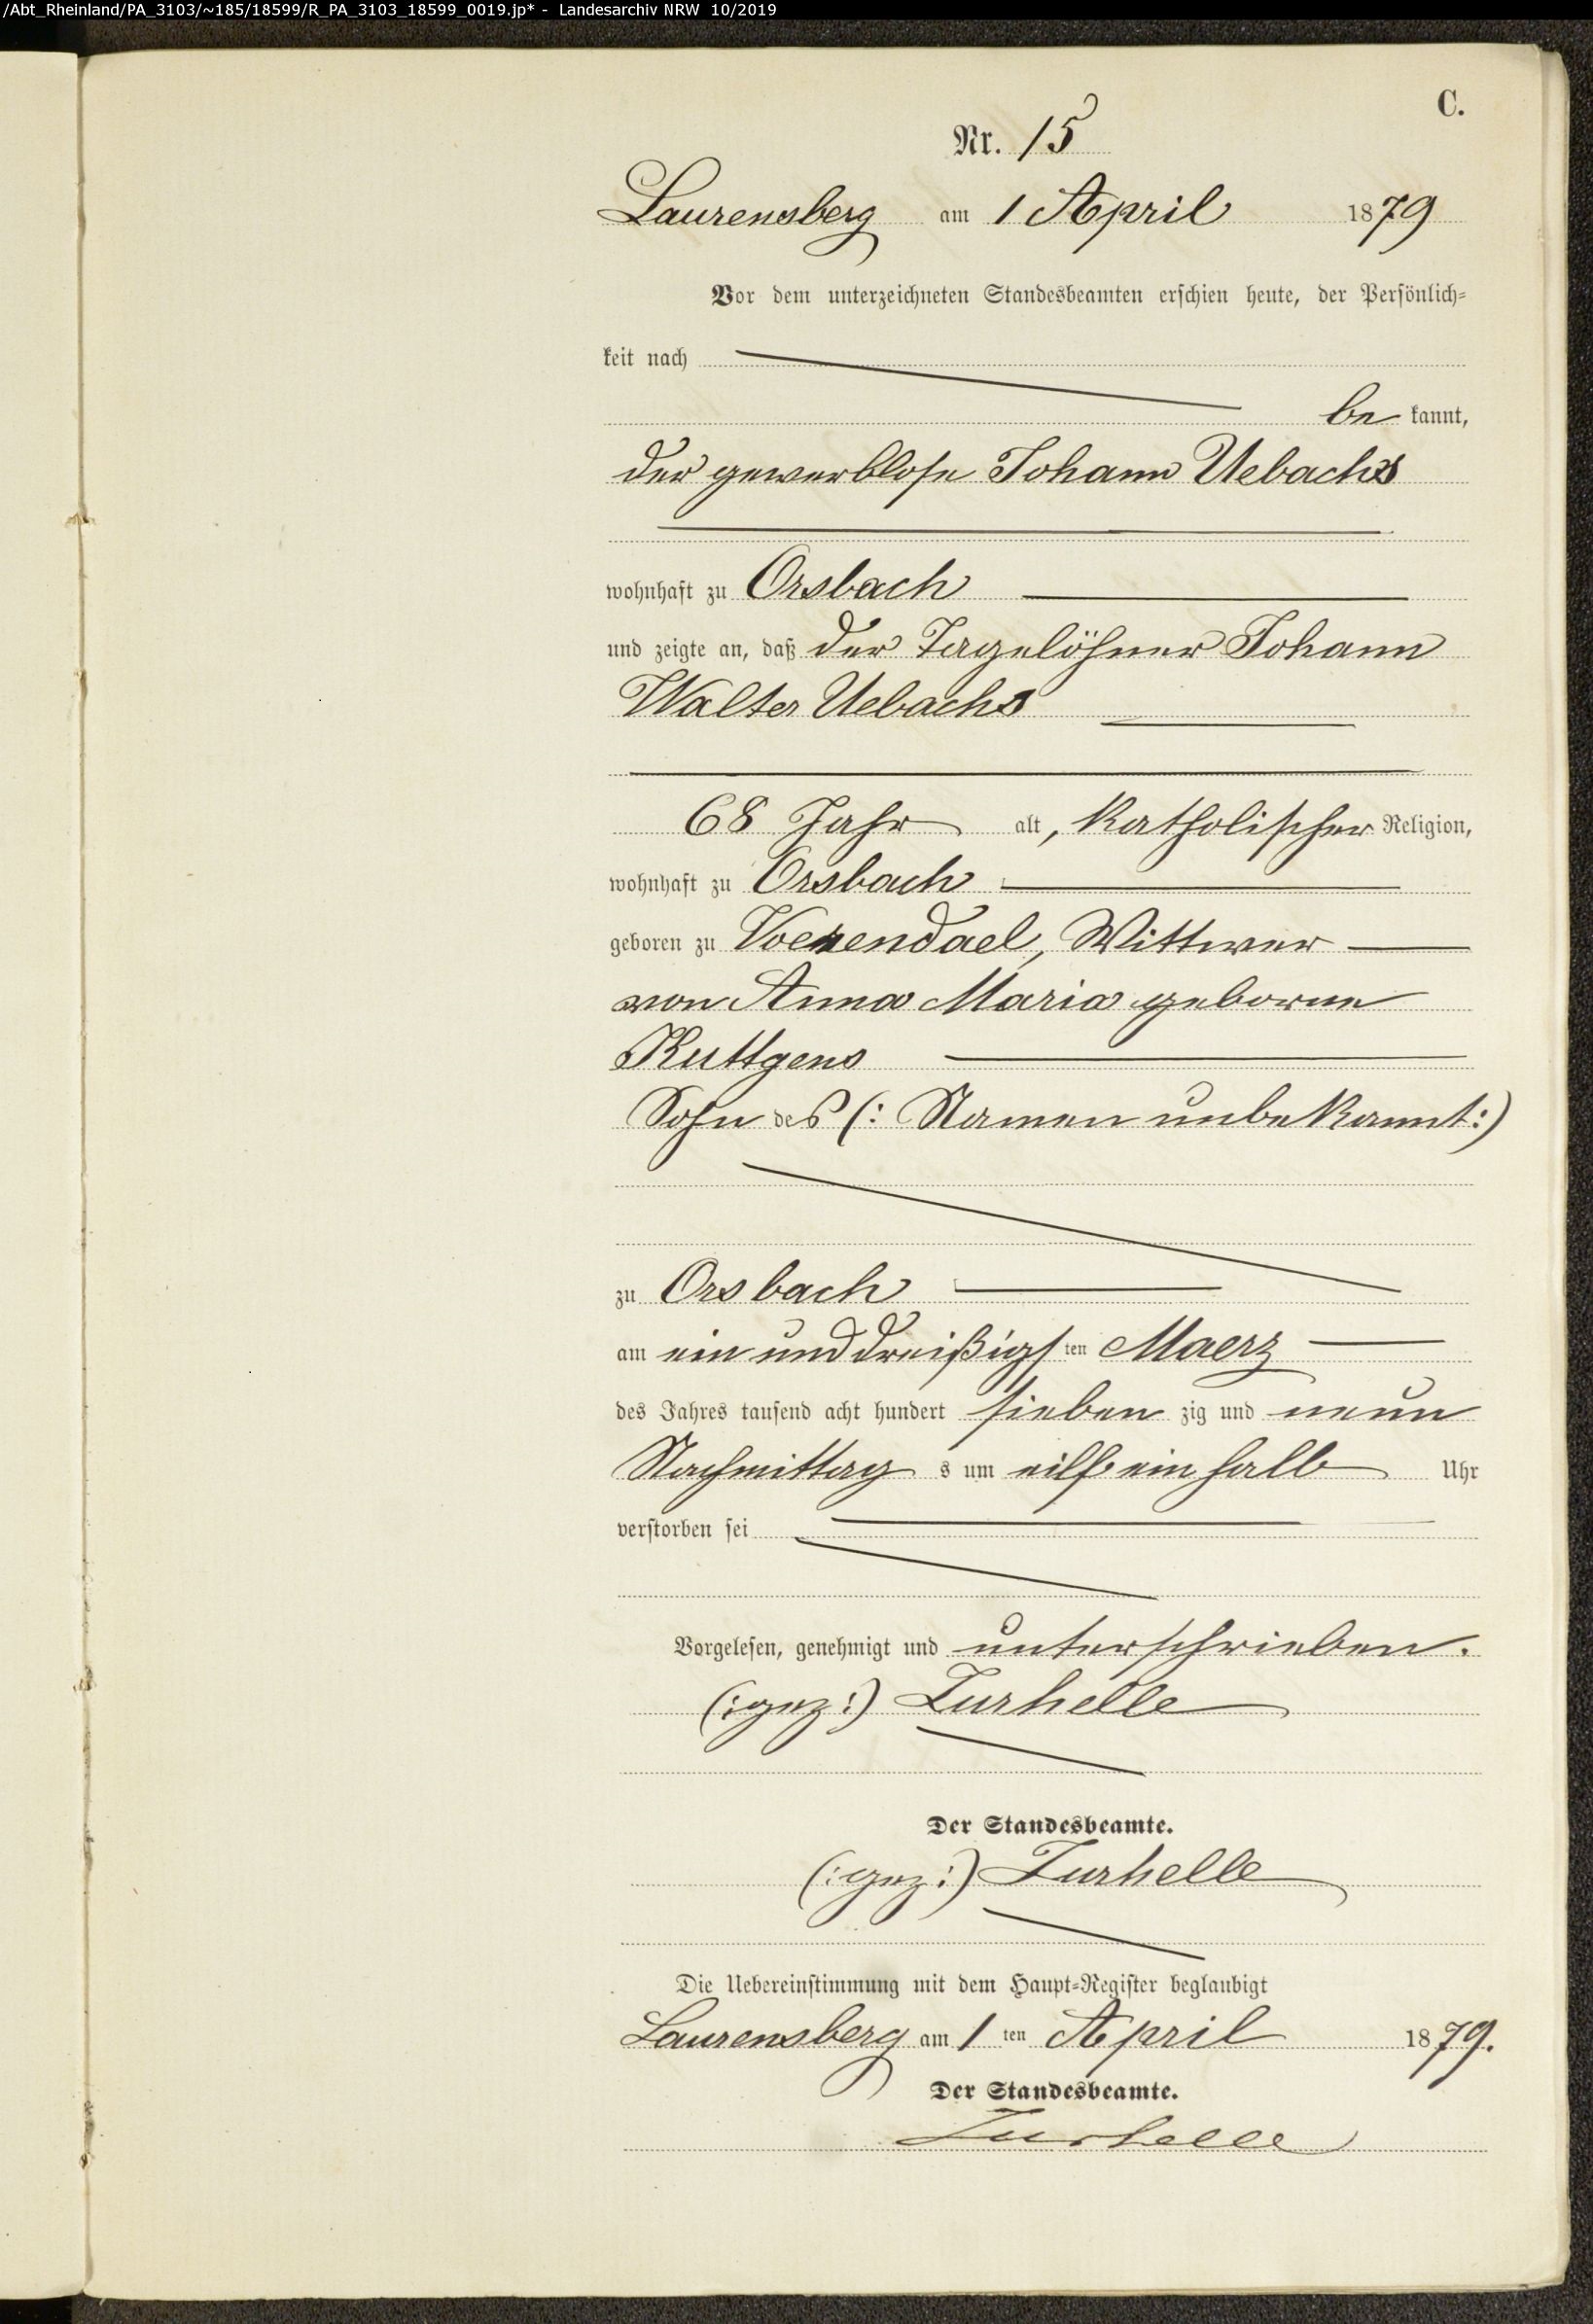 /Abt_Rheinland/PA_3103/~185/18599/R_PA_3103_18599_0019.jp* - Landesarchiv NRW 10/2019
C.
Nr. 15
Laurensberg am 1 April 1879
Vor dem unterzeichneten Standesbeamten erschien heute, der Persönlich-
keit nach
be kannt,
der gewerblose Johann Uebachs
wohnhaft zu Orsbach
und zeigte an, daß der Tagelöhner Johann
Walter Uebachs
68 Jahr alt, katholischer Religion,
wohnhaft zu Orsbach
geboren zu Voerendael, Wittwer
von Anna Maria geborne
Kuttgens
Sohn des (: Namen unbekannt:)
zu Orsbach
am ein und dreißigsten Maerz
des Jahres tausend acht hundert sieben zig und neun
Nachmittag s um eilf ein halb Uhr
verstorben sei
Vorgelesen, genehmigt und unterschrieben.
(:gez:) Zurhelle
Der Standesbeamte.
(:gez:) Zurhelle
Die Uebereinstimmung mit dem Haupt-Register beglaubigt
Laurensberg am 1 ten April 1879.
Der Standesbeamte.
Zurhelle